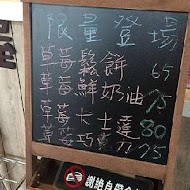 限量登場
草莓鬆餅 65
草莓鮮奶油 75
草莓卡士達 80
草莓巧 75
謝絕自帶